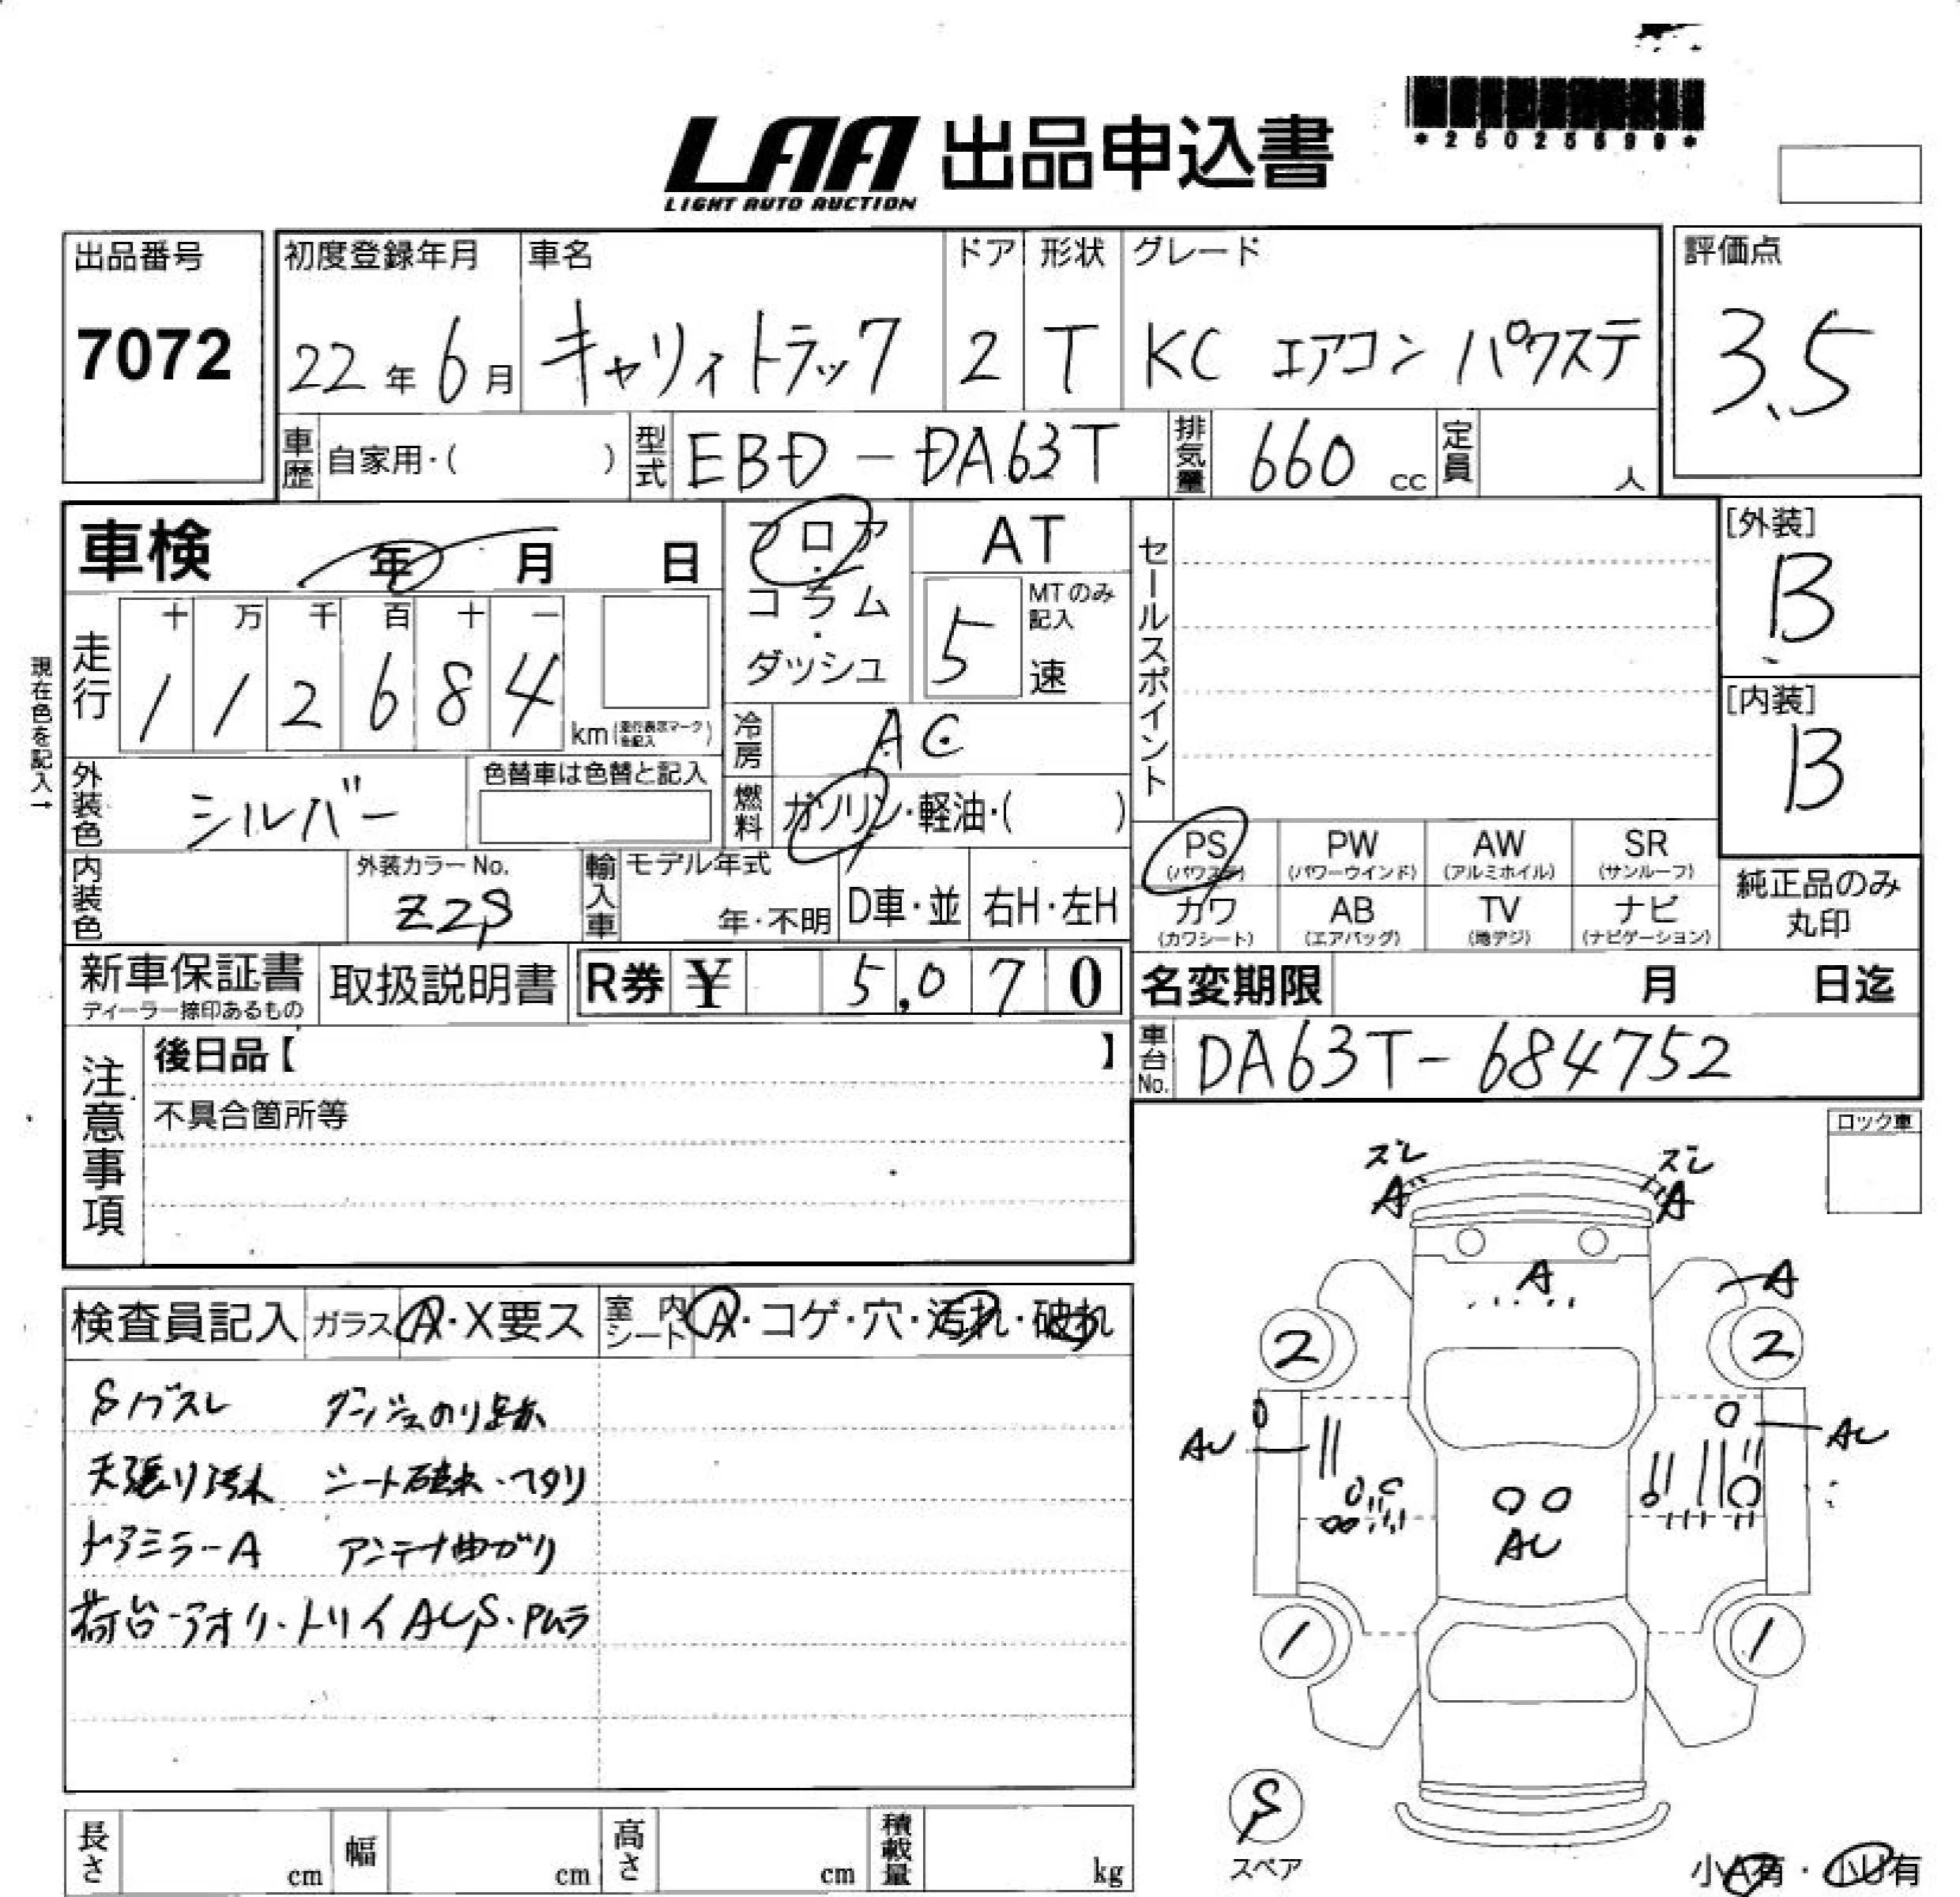 *25025899*
LAA 出品申込書
LIGHT AUTO AUCTION
出品番号
7072
初度登録年月
22年6月
車名
キャリィトラック
ドア
2
形状
T
グレード
KC エアコン パワステ
評価点
3.5
車歴
自家用・( )
型式
EBD-DA63T
排気量
660 cc
定員
人
車検 年 月 日
フロア・コラム・ダッシュ
AT
5
MTのみ記入
速
セールスポイント
[外装]
B
[内装]
B
現在色を記入→
走行
十 万 千 百 十 一
1 1 2 6 8 4
km(走行表示マークを記入)
冷房
AC
外装色
シルバー
色替車は色替と記入
燃料
ガソリン・軽油・( )
PS (パワステ)
PW (パワーウインド)
AW (アルミホイル)
SR (サンルーフ)
カワ (カワシート)
AB (エアバッグ)
TV (地デジ)
ナビ (ナビゲーション)
純正品のみ
丸印
内装色
外装カラーNo.
Z2S
輸入車
モデル年式
年・不明
D車・並
右H・左H
新車保証書
ディーラー捺印あるもの
取扱説明書
R券 ¥ 5,070
名変期限 月 日迄
車台No.
DA63T-684752
注意事項
後日品【 】
不具合箇所等
ロック車
ズレ
A
ズレ
A
A
A
2
2
AU
AU
AU
1
1
S
スペア
小A有・小U有
検査員記入
ガラス
A・X要ス
室内シート
A・コゲ・穴・汚れ・破れ
天張り汚れ シート破れ・ヘタリ
ドアミラーA アンテナ曲がり
荷台・アオリ・トリイAUS・Pムラ
長さ cm
幅 cm
高さ cm
積載量 kg